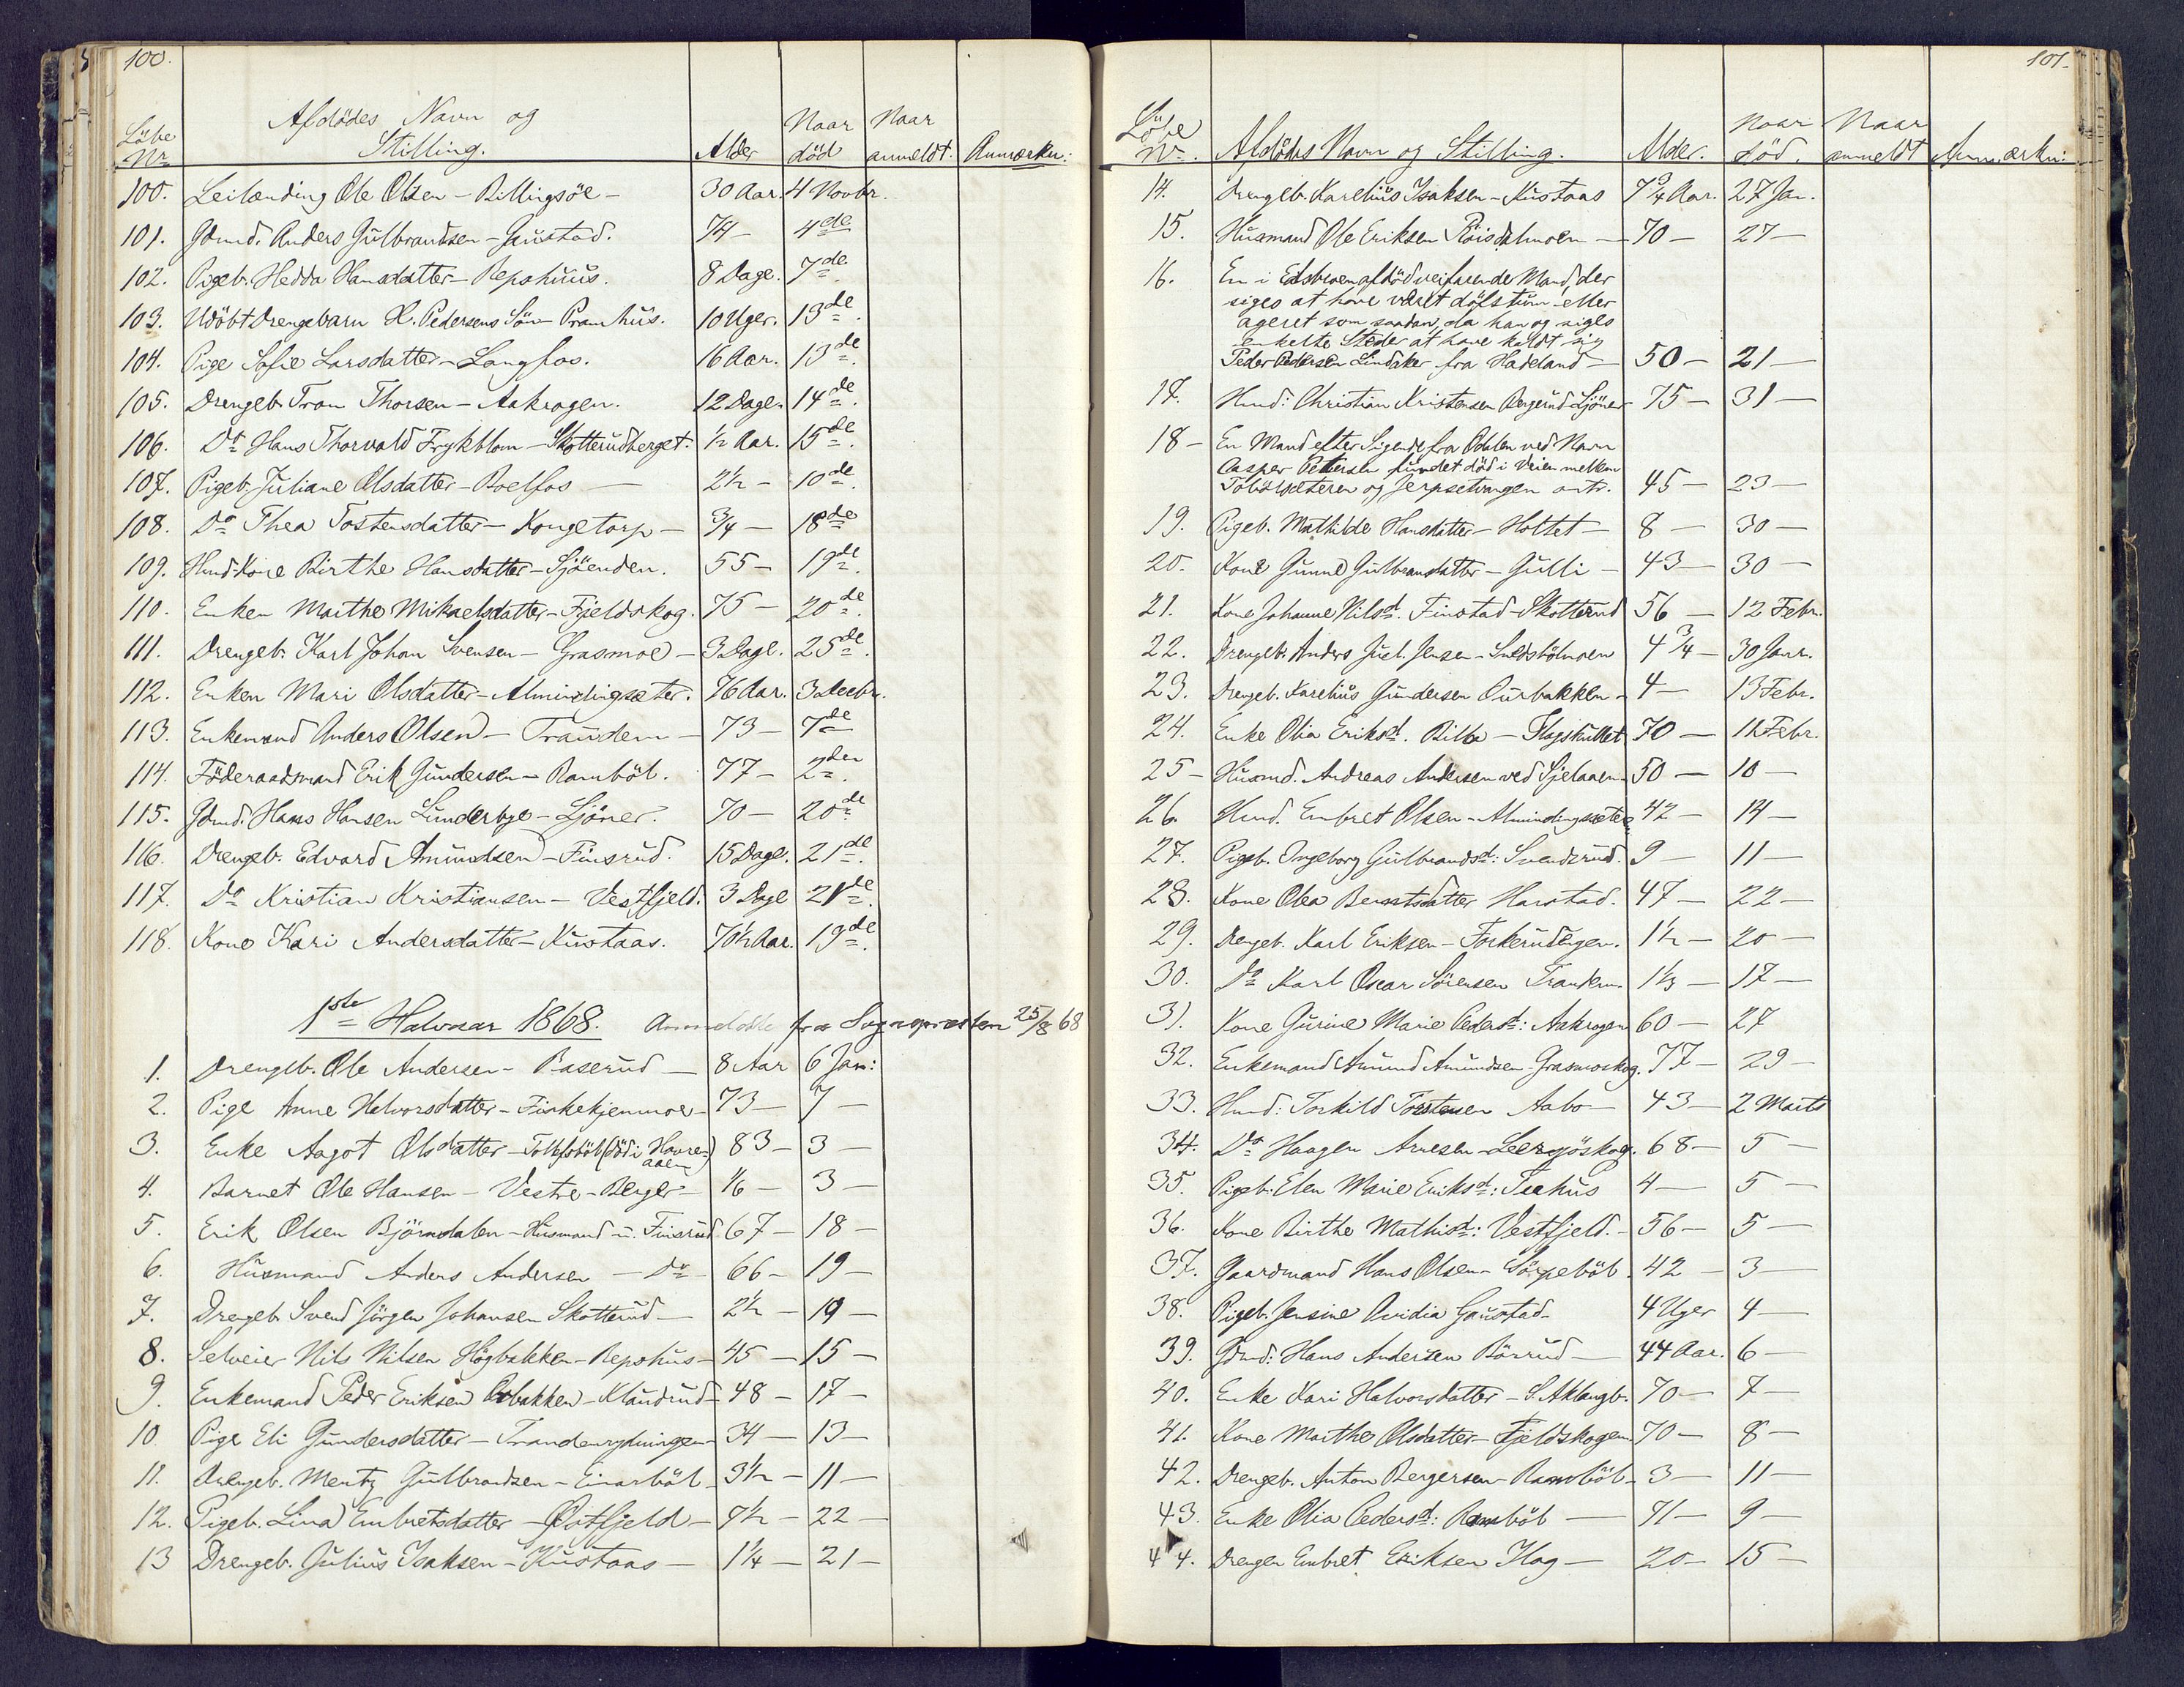 100.
Löbe Nr. Afdödes Navn og Stilling. Alder Naar död Naar anmeldt. Anmærkn:
100. Leilænding Ole Olsen - Billingsöe - 30 Aar. 4 Novbr.
101. Gdmd. Anders Gulbrandsen - Gaustad. 74 - 4de
102. Pigeb. Hedda Hansdatter - Repshuus. 8 Dage. 7de
103. Udöbt Drengebarn H. Pedersens Sön - Pramhus. 10 Uger. 13de.
104. Pige Sofie Larsdatter - Langfos. 16 Aar. 13de.
105. Drengeb. Tron Thorsen - Aakrogen. 12 Dage. 14de.
106. Do Hans Thorvald Frykblom - Skotterudberget. ½ Aar. 15de.
107. Pigeb. Juliane Olsdatter - Boelfos - 2½ - 10de.
108. Do Thea Tostensdatter - Kongetorp - ¾ - 18de
109. Hmd. Kone Birthe Hansdatter - Sjöenden. 55 - 19de.
110. Enken Marthe Mikaelsdatter - Fjeldskog. 75 - 20de.
111. Drengeb. Karl Johan Svensen - Grasmoe - 3 Dage. 25de.
112. Enken Mari Olsdatter - Almindingsæter. 76 Aar. 3 Decbr.
113. Enkemand Anders Olsen - Trandem - 73 - 7de
114. Föderaadsmand Erik Gundersen - Ramböl. 77 - 2den.
115. Gdmd. Hans Hansen Lunderbye - Ljöner. 70 - 20de
116. Drengeb. Edvard Amundsen - Finsrud. 15 Dage. 21de.
117. Do Kristian Kristiansen - Vestfjeld. 3 Dage 21de.
118. Kone Kari Andersdatter - Kustaas. 70½ Aar. 19de.
1ste Halvaar 1868. Anmeldte fra Sognepræsten 25/8 68
1. Drengeb. Ole Andersen - Baserud - 8 Aar 6 Jan:
2. Pige Anne Halvorsdatter - Finkekjernmoe - 73 - 7 -
3. Enke Aagot Olsdatter - Tollefsböl (död i Havre-
aaen) 83 - 3 -
4. Barnet Ole Hansen - Vestre-Berger - 1/6 - 3 -
5. Erik Olsen Björnsdalen - Husmand u. Finsrud. 67 - 18 -
6. Husmand Anders Andersen - Do - 66 - 19 -
7. Drengeb. Svend Jörgen Johansen Skotterud - 2½ - 19 -
8. Selveier Nils Nilsen Högbakken - Repshus - 45 - 15 -
9. Enkemand Peder Eriksen Orbakken - Klaudrud - 48 - 17 -
10 Pige Eli Gundersdatter - Trandemrydningen - 34 - 13 -
11. Drengeb. Mentz Gulbrandsen - Einarböl - 3½ - 11 -
12. Pigeb. Lina Embretsdatter - Östfjeld - 7½ - 22 -
13 Drengeb. Julius Isaksen - Kustaas - 1¼ - 21 -
101.
Löbe Nr. Afdödes Navn og Stilling. Alder. Naar död. Naar anmeldt Anmærkn:
14. Drengeb. Karelius Isaksen - Kustaas 7¾ Aar. 27 Jan.
15. Husmand Ole Eriksen Röisdalmoen - 70 - 27 -
16. En i Edsbroen afdöd veifarende Mand, der
siges at have været döfstum eller
ageret som saadan, da han og siges
enkelte Steder at have kaldt sig
Peder Pedersen Lindaker fra Hadeland - 50 - 21 -
17. Hmd: Christian Kristensen Bergerud Ljöner 75 - 31 -
18 - En Mand efter Sigende fra Odalen ved Navn
Casper Pettersen fundet död i Veien mellem
Tobölsæteren og Jerpsetvangen 45 - 23 -
19. Pigeb. Mathilde Hansdatter - Holtet - 8 - 30 -
20. Kone Gunne Gulbransdatter - Gulli - 43 - 30 -
21. Kone Johanne Nilsd. Finstad - Skotterud 56 - 12 Febr.
22. Drengeb. Anders Jensen - 4¾ - 30 Janr.
23. Drengeb. Karelius Gundersen - 4 - 13 Febr.
24. Enke Olia Eriksd. Billa - Flagskullet 70 - 11 Febr.
25 - Husmd. Andreas Andersen ved Sjelaaen - 50 - 10 -
26. Hmd. Embret Olsen - Almindingsæter 42 - 14 -
27. Pigeb. Ingeborg Gulbrandsd: Svendsrud. 9 - 11 -
28. Kone Olea Berntsdatter Harstad. 47 - 22 -
29. Drengeb. Karl Eriksen - Forkerudengen. 1½ - 20 -
30. Do Karl Oscar Sörensen Trandem 1⅓ - 17 -
31. Kone Gurine Marie Pedersd: Aakrogen 60 - 27
32. Enkemand Amund Amundsen - Grasmoskog. 77 - 29 -
33. Hmd: Torkild Torstensen Aabo - 43 - 2 Marts
34. Do Haagen Arnesen - Leersjöskog. 68 - 5 -
35. Pigeb. Elen Marie Eriksd: 4 - 5 -
36. Kone Birthe Mathisd: Vestfjeld. - 56 - 5 -
37. Gaardmand Hans Olsen - Sörpeböl. 42 - 3 -
38. Pigeb. Jensine Ovidia Gaustad - 4 Uger 4 -
39. Gdmd: Hans Andersen Börrud - 44 Aar. 6 -
40. Enke Kari Halvorsdatter - S. Aklangb. 70 - 7 -
41. Kone Marthe Olsdatter - Fjeldskogen 70 - 8 -
42. Drengeb. Anton Bergersen - Ramböl - 3 - 11 -
43. Enke Olia Pedersd: Ramböl - 71 - 9 -
44. Drengen Embret Eriksen Hag - 20 - 15 -